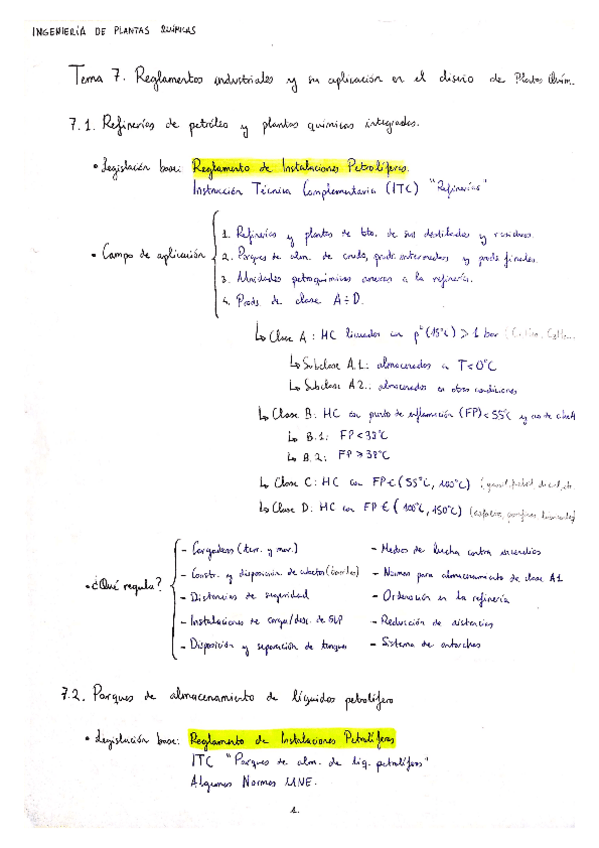 INGENIERÍA DE PLANTAS QUÍMICAS
Tema 7. Reglamentos industriales y su aplicación en el diseño de Plantas Quím.
7.1. Refinerías de petróleo y plantas químicas integradas.
• Legislación base: Reglamento de Instalaciones Petrolíferas.
Instrucción Técnica Complementaria (ITC) "Refinerías"
• Campo de aplicación
1. Refinerías y plantas de tto. de sus destilados y residuos.
2. Parques de alm. de crudo, prods. intermedios y prods finales.
3. Unidades petroquímicas anexas a la refinería.
4. Prods. de clase A ÷ D.
↳ Clase A: HC licuados con pº (15ºC) > 1 bar
↳ Subclase A.1.: almacenados a T<0ºC
↳ Subclase A2.: almacenados en otras condiciones
↳ Clase B: HC con punto de inflamación (FP) < 55ºC y no de clase A
↳ B.1: FP < 38ºC
↳ B.2: FP ≥ 38ºC
↳ Clase C: HC con FP ∈ (55ºC, 100ºC)
↳ Clase D: HC con FP ∈ (100ºC, 150ºC)
• ¿Qué regula?
- Cargaderos (terr. y mar.) - Medios de lucha contra incendios
- Constr. y disposición de cubetos - Normas para almacenamiento de clase A1
- Distancias de seguridad - Ordenación en la refinería
- Instalaciones de carga/desc. de GLP - Reducción de distancias
- Disposición y separación de tanques - Sistema de antorchas
7.2. Parques de almacenamiento de líquidos petrolífero
• Legislación base: Reglamento de Instalaciones Petrolíferas
ITC "Parques de alm. de líq. petrolíferos"
Algunas Normas UNE.
1.